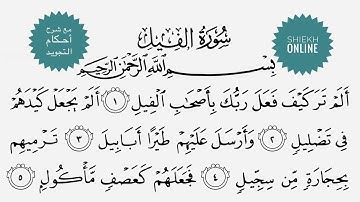 مع شرح
أحكام
التجويد
سُورَةُ الفِيلِ
SHIEKH
ONLINE
بِسْمِ اللَّهِ الرَّحْمَٰنِ الرَّحِيمِ
أَلَمْ تَرَ كَيْفَ فَعَلَ رَبُّكَ بِأَصْحَٰبِ ٱلْفِيلِ ١ أَلَمْ يَجْعَلْ كَيْدَهُمْ
فِي تَضْلِيلٍ ٢ وَأَرْسَلَ عَلَيْهِمْ طَيْرًا أَبَابِيلَ ٣ تَرْمِيهِم
بِحِجَارَةٍ مِّن سِجِّيلٍ ٤ فَجَعَلَهُمْ كَعَصْفٍ مَّأْكُولٍ ٥